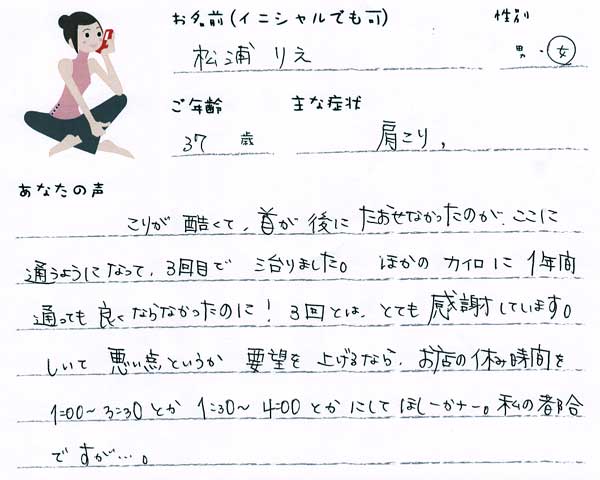 お名前(イニシャルでも可) 性別
松浦 りえ 男・女
ご年齢 主な症状
37 歳 肩こり,
あなたの声
こりが 酷くて、首が 後に たおせなかったのが、ここに
通うようになって、3回目で 治りました。 ほかの カイロに 1年間
通っても 良くならなかったのに! 3回とは、とても 感謝しています。
しいて 悪い点というか 要望を 上げるなら、お店の休み時間を
1:00〜3:30 とか 1:30〜4:00 とか にして ほしーかナー。私の都合
ですが…。